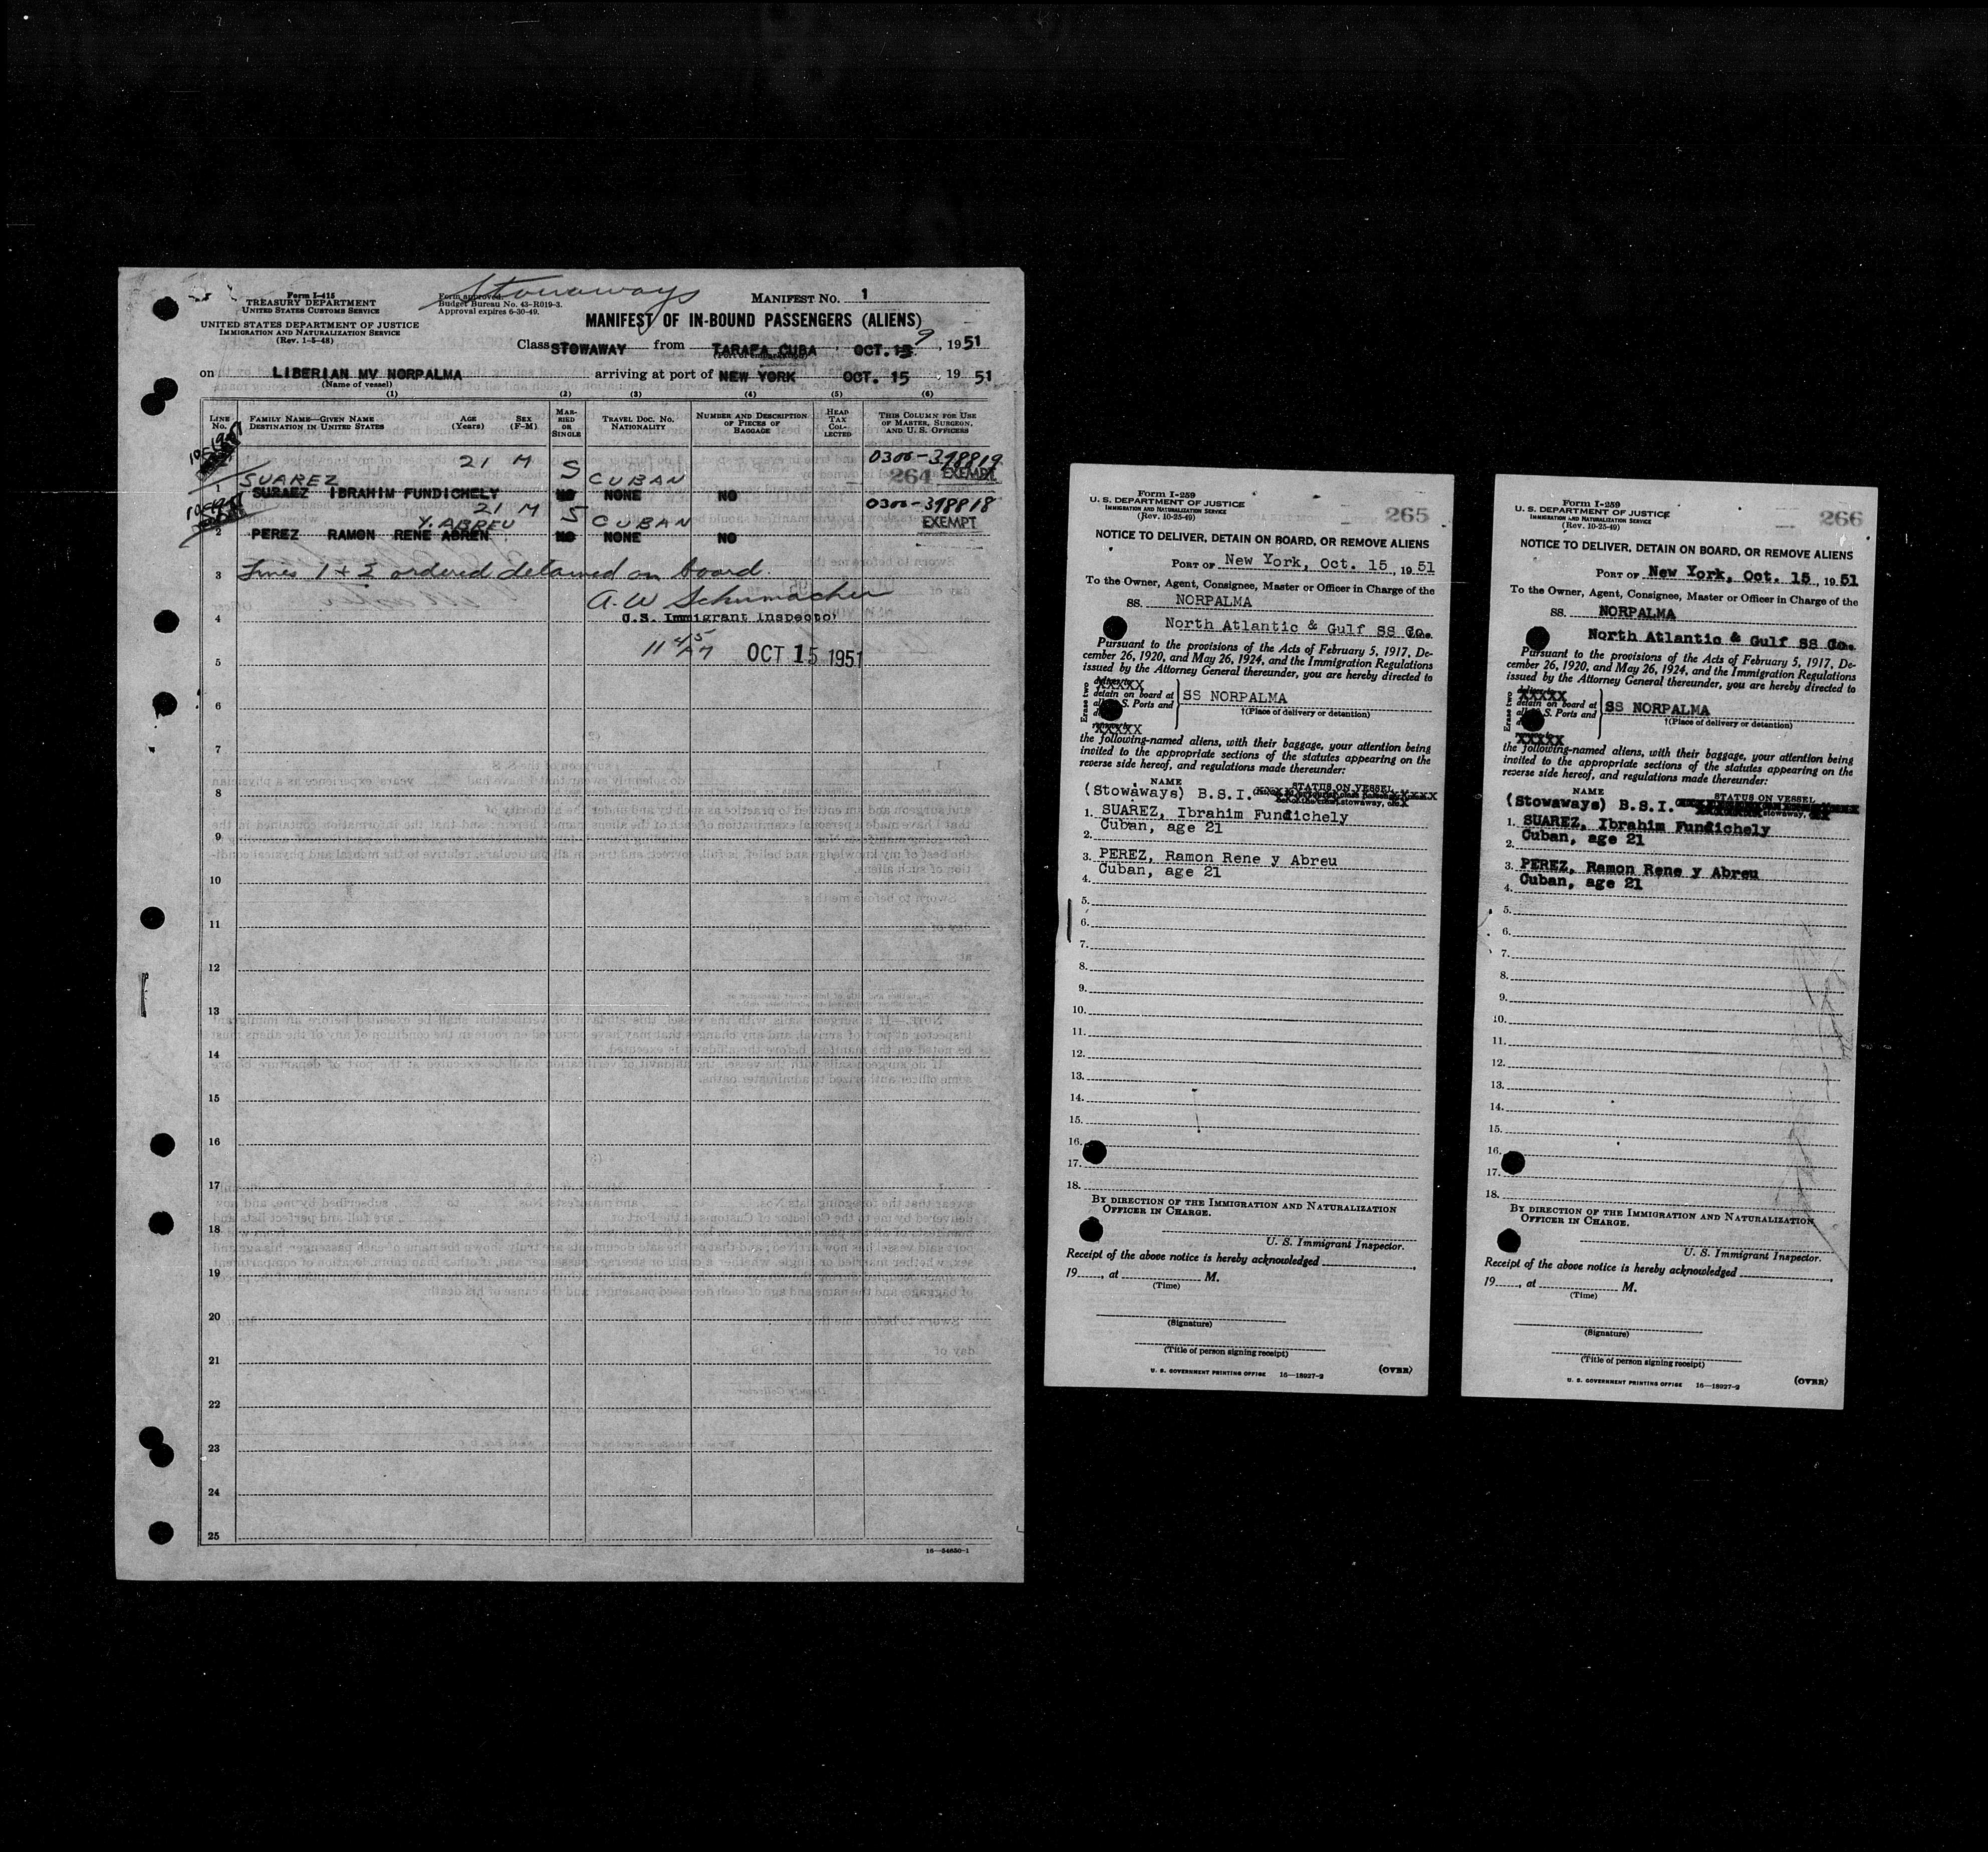 Stowaways
Form I-415
TREASURY DEPARTMENT
UNITED STATES CUSTOMS SERVICE
UNITED STATES DEPARTMENT OF JUSTICE
IMMIGRATION AND NATURALIZATION SERVICE
(Rev. 1-5-48)
Form approved.
Budget Bureau No. 43-R019-3.
Approval expires 6-30-49.
MANIFEST NO. 1
MANIFEST OF IN-BOUND PASSENGERS (ALIENS)
Class STOWAWAY from TARAFA CUBA, OCT. 9, 1951
(Port of embarkation)
on LIBERIAN MV NORPALMA arriving at port of NEW YORK OCT. 15, 1951
(Name of vessel)
(1) (2) (3) (4) (5) (6)
LINE No. FAMILY NAME—GIVEN NAME DESTINATION IN UNITED STATES AGE (Years) SEX (F-M) MARRIED OR SINGLE TRAVEL DOC. NO. NATIONALITY NUMBER AND DESCRIPTION OF PIECES OF BAGGAGE HEAD TAX COLLECTED THIS COLUMN FOR USE OF MASTER, SURGEON, AND U. S. OFFICERS
21 M S CUBAN 0300-398819
SUAREZ 264 EXEMPT
1 SURAEZ IBRAHIM FUNDICHELY NO NONE NO
21 M S CUBAN 0300-398818
Y. ABREU EXEMPT
2 PEREZ RAMON RENE ABREN NO NONE NO
3 Lines 1 + 2 ordered detained on board.
A. W Schumacher
4 U.S. Immigrant Inspector
11 45 OCT 15 1951
5
6
7
8
9
10
11
12
13
14
15
16
17
18
19
20
21
22
23
24
25
16—54650-1
Form I-259
U. S. DEPARTMENT OF JUSTICE
IMMIGRATION AND NATURALIZATION SERVICE
(Rev. 10-25-49)
265
NOTICE TO DELIVER, DETAIN ON BOARD, OR REMOVE ALIENS
PORT OF New York, Oct. 15, 1951
To the Owner, Agent, Consignee, Master or Officer in Charge of the
SS. NORPALMA
North Atlantic & Gulf SS Co.
Pursuant to the provisions of the Acts of February 5, 1917, De-
cember 26, 1920, and May 26, 1924, and the Immigration Regulations
issued by the Attorney General thereunder, you are hereby directed to
Erase two
XXXXX
detain on board at
S. Ports and
SS NORPALMA
†(Place of delivery or detention)
XXXXX
the following-named aliens, with their baggage, your attention being
invited to the appropriate sections of the statutes appearing on the
reverse side hereof, and regulations made thereunder:
NAME STATUS ON VESSEL
(Stowaways) B.S.I. stowaway,
1. SUAREZ, Ibrahim Fundichely
Cuban, age 21
2.
3. PEREZ, Ramon Rene y Abreu
Cuban, age 21
4.
5.
6.
7.
8.
9.
10.
11.
12.
13.
14.
15.
16.
17.
18.
BY DIRECTION OF THE IMMIGRATION AND NATURALIZATION
OFFICER IN CHARGE.
U. S. Immigrant Inspector.
Receipt of the above notice is hereby acknowledged
19, at M.
(Time)
(Signature)
(Title of person signing receipt)
U. S. GOVERNMENT PRINTING OFFICE 16—18927-2 (OVER)
Form I-259
U. S. DEPARTMENT OF JUSTICE
IMMIGRATION AND NATURALIZATION SERVICE
(Rev. 10-25-49)
266
NOTICE TO DELIVER, DETAIN ON BOARD, OR REMOVE ALIENS
PORT OF New York, Oct. 15, 1951
To the Owner, Agent, Consignee, Master or Officer in Charge of the
SS. NORPALMA
North Atlantic & Gulf SS Co.
Pursuant to the provisions of the Acts of February 5, 1917, De-
cember 26, 1920, and May 26, 1924, and the Immigration Regulations
issued by the Attorney General thereunder, you are hereby directed to
Erase two
XXXXX
detain on board at
S. Ports and
SS NORPALMA
†(Place of delivery or detention)
XXXXX
the following-named aliens, with their baggage, your attention being
invited to the appropriate sections of the statutes appearing on the
reverse side hereof, and regulations made thereunder:
NAME STATUS ON VESSEL
(Stowaways) B.S.I. stowaway,
1. SUAREZ, Ibrahim Fundichely
Cuban, age 21
2.
3. PEREZ, Ramon Rene y Abreu
Cuban, age 21
4.
5.
6.
7.
8.
9.
10.
11.
12.
13.
14.
15.
16.
17.
18.
BY DIRECTION OF THE IMMIGRATION AND NATURALIZATION
OFFICER IN CHARGE.
U. S. Immigrant Inspector.
Receipt of the above notice is hereby acknowledged
19, at M.
(Time)
(Signature)
(Title of person signing receipt)
U. S. GOVERNMENT PRINTING OFFICE 16—18927-2 (OVER)